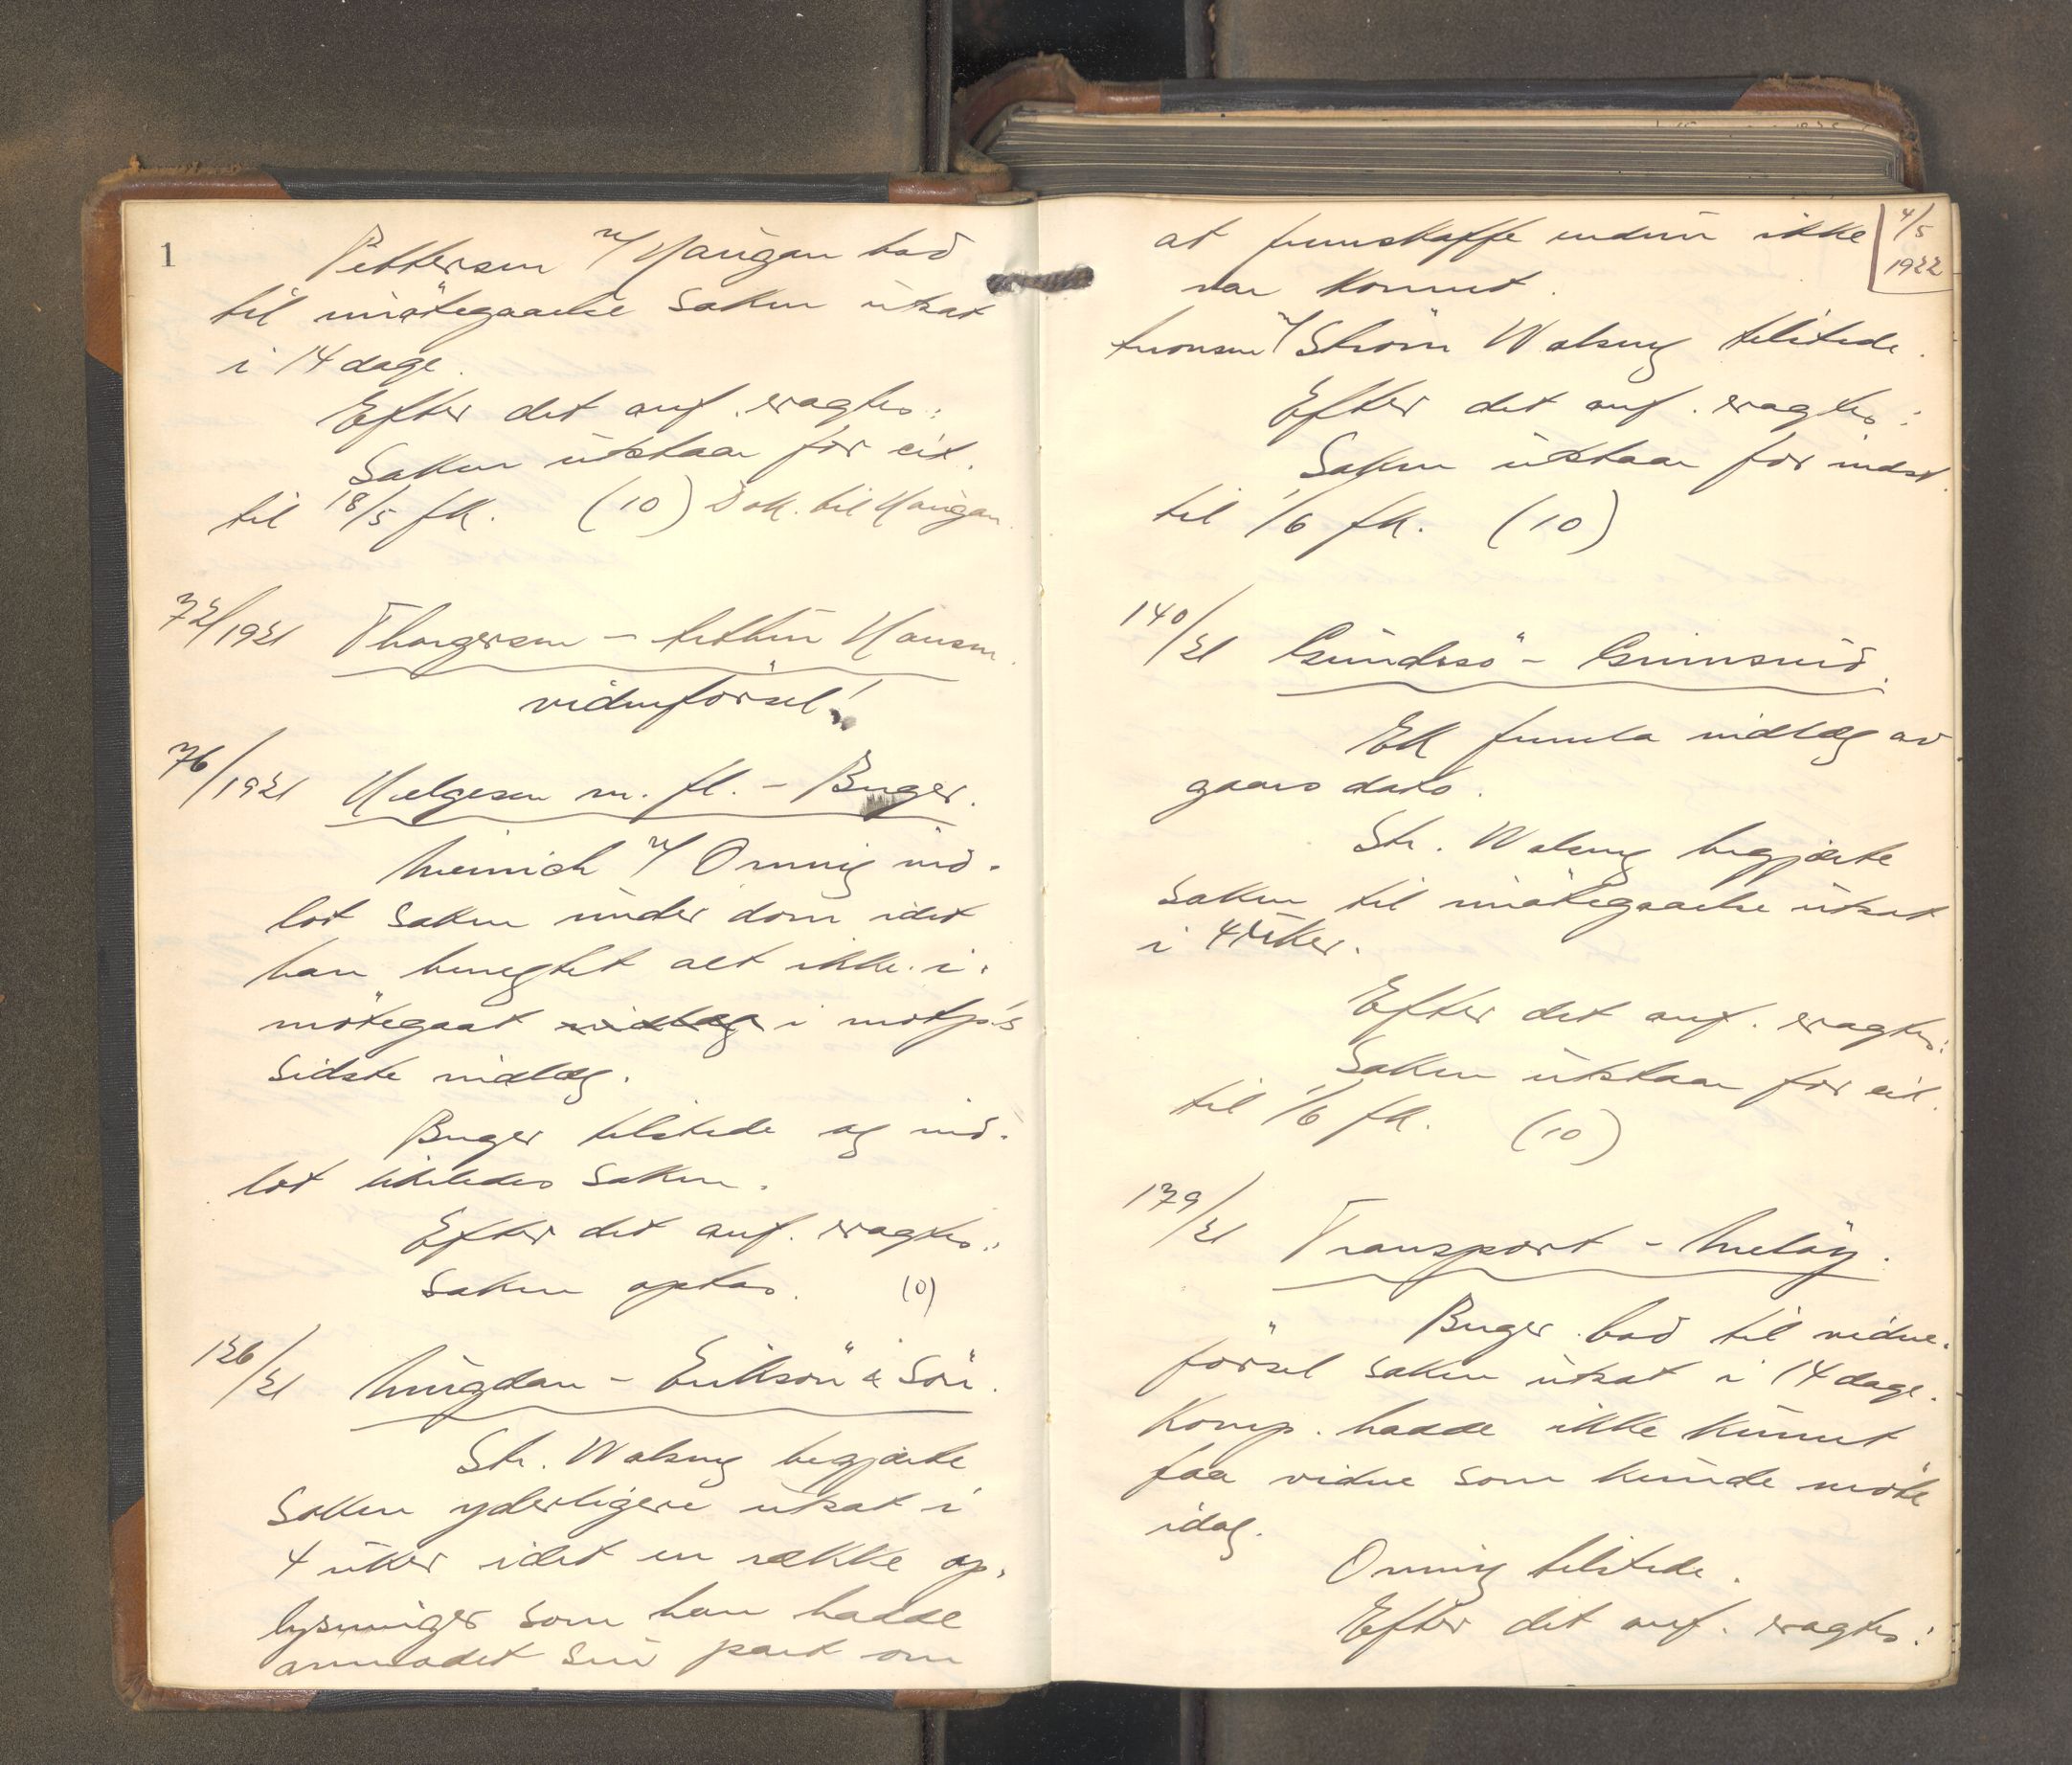 1
Pettersen v/ Haugan bad
til imötegaaelse saken utsat
i 14 dage.
Efter det anf. eragtes:
Saken utstaar for eit.
til 18/5 fk. (10) Dok. til Haugan.
72/1921 Thorgersen - Arthur Hansen.
vidneförsel!
76/1921 Helgesen m. fl. - Buger.
Meinich v/ Onnig ind-
lot saken under dom idet
han benegtet alt ikke i-
mötegaat i motp's
sidste indlæg.
Buger tilstede og ind-
lot likeledes saken.
Efter det anf. eragtes:
Saken optas. (0)
126/21 - Erikson & Sön.
Str. Walseng begjærte
saken yderligere utsat i
4 uker idet en række op-
lysninger som han hadde
anmodet sin part om
4/5 1922
at fremskaffe endnu ikke
var kommet.
v/ Ström Walseng tilstede.
Efter det anf. eragtes:
Saken utstaar for indst.
til 1/6 fk. (10)
140/21 Gundersö - Grimsrud.
EK fremla indlæg av
gaars dato.
Str. Walseng begjærte
saken til imötegaaelse utsat
i 4 uker.
Efter det anf. eragtes:
Saken utstaar for eit.
til 1/6 fk. (10)
179/21 Transport - Melöy.
Buger bad til vidne-
försel saken utsat i 14 dage.
Komp. hadde ikke kunnet
faa vidne som kunde möte
idag.
Onnig tilstede.
Efter det anf. eragtes: